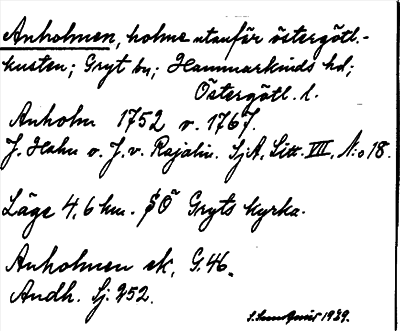 Anholmen, holme utanför östergötl.-
kusten; Gryt sn; Hammarkinds hd;
Östergötl. l.
Anholm 1752 o. 1767.
J. Hahn o. J. v. Rajalin. SjA, Litt. VIII, N:o 18.
Läge 4,6 km. SÖ Gryts kyrka.
Anholmen ek. G. 46.
Andh. Sj. 252.
1929.